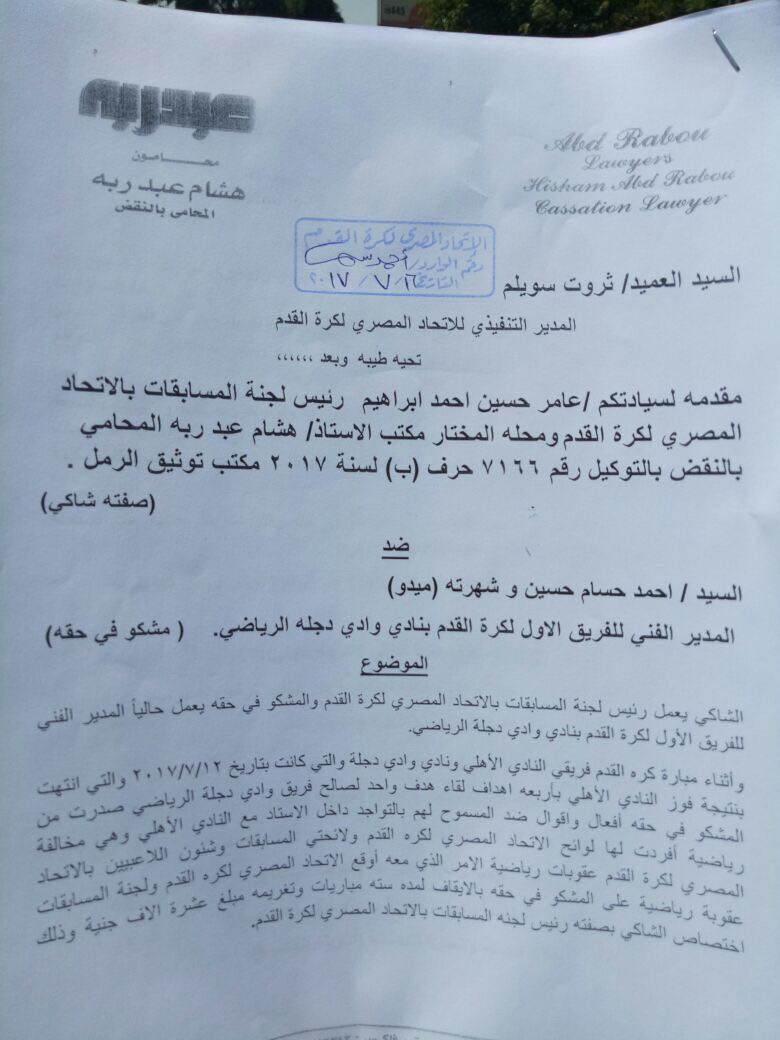 عبدربه
محامون
هشام عبد ربه
المحامى بالنقض
Abd Rabou
Lawyers
Hisham Abd Rabou
Cassation Lawyer
الإتحاد المصرى لكرة القدم
رقم الوارد/
التاريخ ١٦ / ٧ / ٢٠١٧
السيد العميد/ ثروت سويلم
المدير التنفيذي للاتحاد المصري لكرة القدم
تحيه طيبه وبعد ،،،،،،
مقدمه لسيادتكم /عامر حسين احمد ابراهيم رئيس لجنة المسابقات بالاتحاد
المصري لكرة القدم ومحله المختار مكتب الاستاذ/ هشام عبد ربه المحامي
بالنقض بالتوكيل رقم ٧١٦٦ حرف (ب) لسنة ٢٠١٧ مكتب توثيق الرمل .
(صفته شاكي)
ضد
السيد / احمد حسام حسين و شهرته (ميدو)
المدير الفني للفريق الاول لكرة القدم بنادي وادي دجله الرياضي. ( مشكو في حقه)
الموضوع
الشاكي يعمل رئيس لجنة المسابقات بالاتحاد المصري لكرة القدم والمشكو في حقه يعمل حالياً المدير الفني
للفريق الأول لكرة القدم بنادي وادي دجلة الرياضي.
وأثناء مبارة كره القدم فريقي النادي الأهلي ونادي وادي دجلة والتي كانت بتاريخ ٢٠١٧/٧/١٢ والتي انتهت
بنتيجة فوز النادي الأهلي بأربعه اهداف لقاء هدف واحد لصالح فريق وادي دجلة الرياضي صدرت من
المشكو في حقه أفعال واقوال ضد المسموح لهم بالتواجد داخل الاستاد مع النادي الأهلي وهي مخالفة
رياضية أفردت لها لوائح الاتحاد المصري لكره القدم ولانحتي المسابقات وشئون اللاعبيين بالاتحاد
المصري لكرة القدم عقوبات رياضية الامر الذي معه أوقع الاتحاد المصري لكره القدم ولجنة المسابقات
عقوبة رياضية علي المشكو في حقه بالايقاف لمده سته مباريات وتغريمه مبلغ عشرة الاف جنية وذلك
اختصاص الشاكي بصفته رئيس لجنه المسابقات بالاتحاد المصري لكرة القدم.